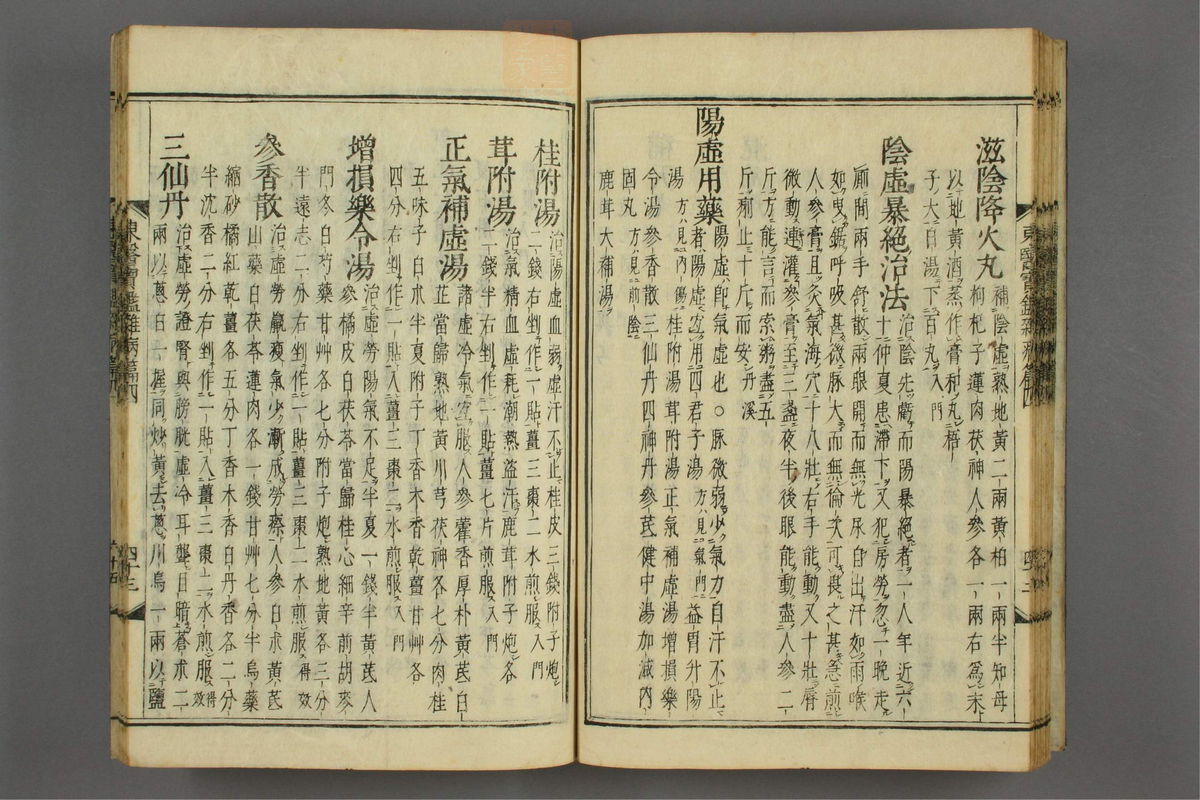 滋陰降火丸補陰虛熟地黃二兩黃柏一兩半知母
枸杞子蓮肉茯神人參各一兩右爲末
以地黃酒蒸作膏和丸梧
子大白湯下百丸入門
陰虛暴絕治法治陰先虧而陽暴絕者一人年近六
十仲夏患滯下又犯房勞忽一晚走
廁間兩手舒散兩眼開而無光尿自出汗如雨喉
如曳鋸呼吸甚微脉大而無倫次可畏之甚急煎
人參膏且灸氣海穴十八壯右手能動又十壯脣
微動連灌參膏至三盞夜半後眼能動盡人參二
斤方能言而索粥盡五
斤痢止十斤而安丹溪
陽虛用藥陽虛卽氣虛也○脉微弱少氣力自汗不止
者陽虛宜用四君子湯方見氣門益胃升陽
湯方見內傷桂附湯茸附湯正氣補虛湯增損樂
令湯參香散三仙丹四神丹參芪健中湯加減內
固丸方見前陰
鹿茸大補湯
桂附湯治陽虛血弱虛汗不止桂皮三錢附子炮
二錢右剉作一貼薑三棗二水煎服入門
茸附湯治氣精血虛耗潮熱盜汗鹿茸附子炮各
二錢半右剉作一貼薑七片煎服入門
正氣補虛湯諸虛冷氣宜服人參藿香厚朴黃芪白
芷當歸熟地黃川芎茯神各七分肉桂
五味子白朮半夏附子丁香木香乾薑甘艸各
四分右剉作一貼入薑三棗二水煎服入門
增損樂令湯治虛勞陽氣不足半夏一錢半黃芪人
參橘皮白茯苓當歸桂心細辛前胡麥
門冬白芍藥甘艸各七分附子炮熟地黃各三分
半遠志二分右剉作一貼薑三棗二水煎服得效
參香散治虛勞羸瘦少氣漸成勞瘵人參白朮黃芪
山藥白茯苓蓮肉各一錢甘艸七分半烏藥
縮砂橘紅乾薑各五分丁香木香白丹香各二分
半沈香二分右剉作一貼入薑三棗二水煎服得效
三仙丹治虛勞證腎與膀胱虛冷耳聾目暗蒼朮二
兩以蔥白一握同炒黃去蔥川烏一兩以鹽